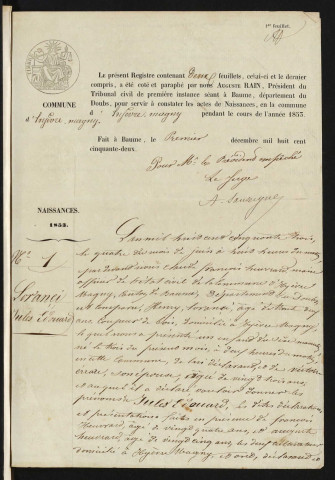 1er feuillet.
Le présent Registre contenant deux feuillets, celui-ci et le dernier
compris, a été coté et paraphé par nous Auguste RAIN, Président du
Tribunal civil de première instance séant à Baume, département du
Doubs, pour servir à constater les actes de Naissances, en la commune
d' hyèvre magny pendant le cours de l'année 1853.
COMMUNE
d'hyèvre magny
Fait à Baume, le Premier décembre mil huit cent
cinquante-deux.
Pour Mr. le Président empêché
Le Juge
NAISSANCES.
1853.
N° 1
Jules Edouard
L'an mil huit cent cinquante trois,
le quatre du mois de juin à huit heures du
par devant nous françois heuvrard maire
officier de l'état civil de la commune d'hyèvre
Magny, de Baume, Département du Doubs,
est comparu, Remy âgé de trente
ans de bois, domicilié à hyèvre Magny,
lequel nous a présenté un enfant du sexe masculin
né le trois du présent mois, à heures du
en cette Commune, de lui déclarant, et de
son épouse, âgée de vingt trois ans,
et auquel il a déclaré vouloir donner les
prénoms de Jules Edouard, les dites déclaration
et présentation faites en présence de françois
heuvrard, âgé de vingt quatre ans, et auguste
heuvrard, âgé de vingt cinq ans, les deux
domicilié à hyèvre Magny, et ont, déclarant et